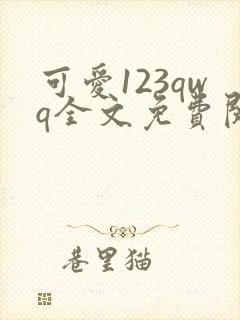 可愛123qw
q全文免費閱
巷里猫